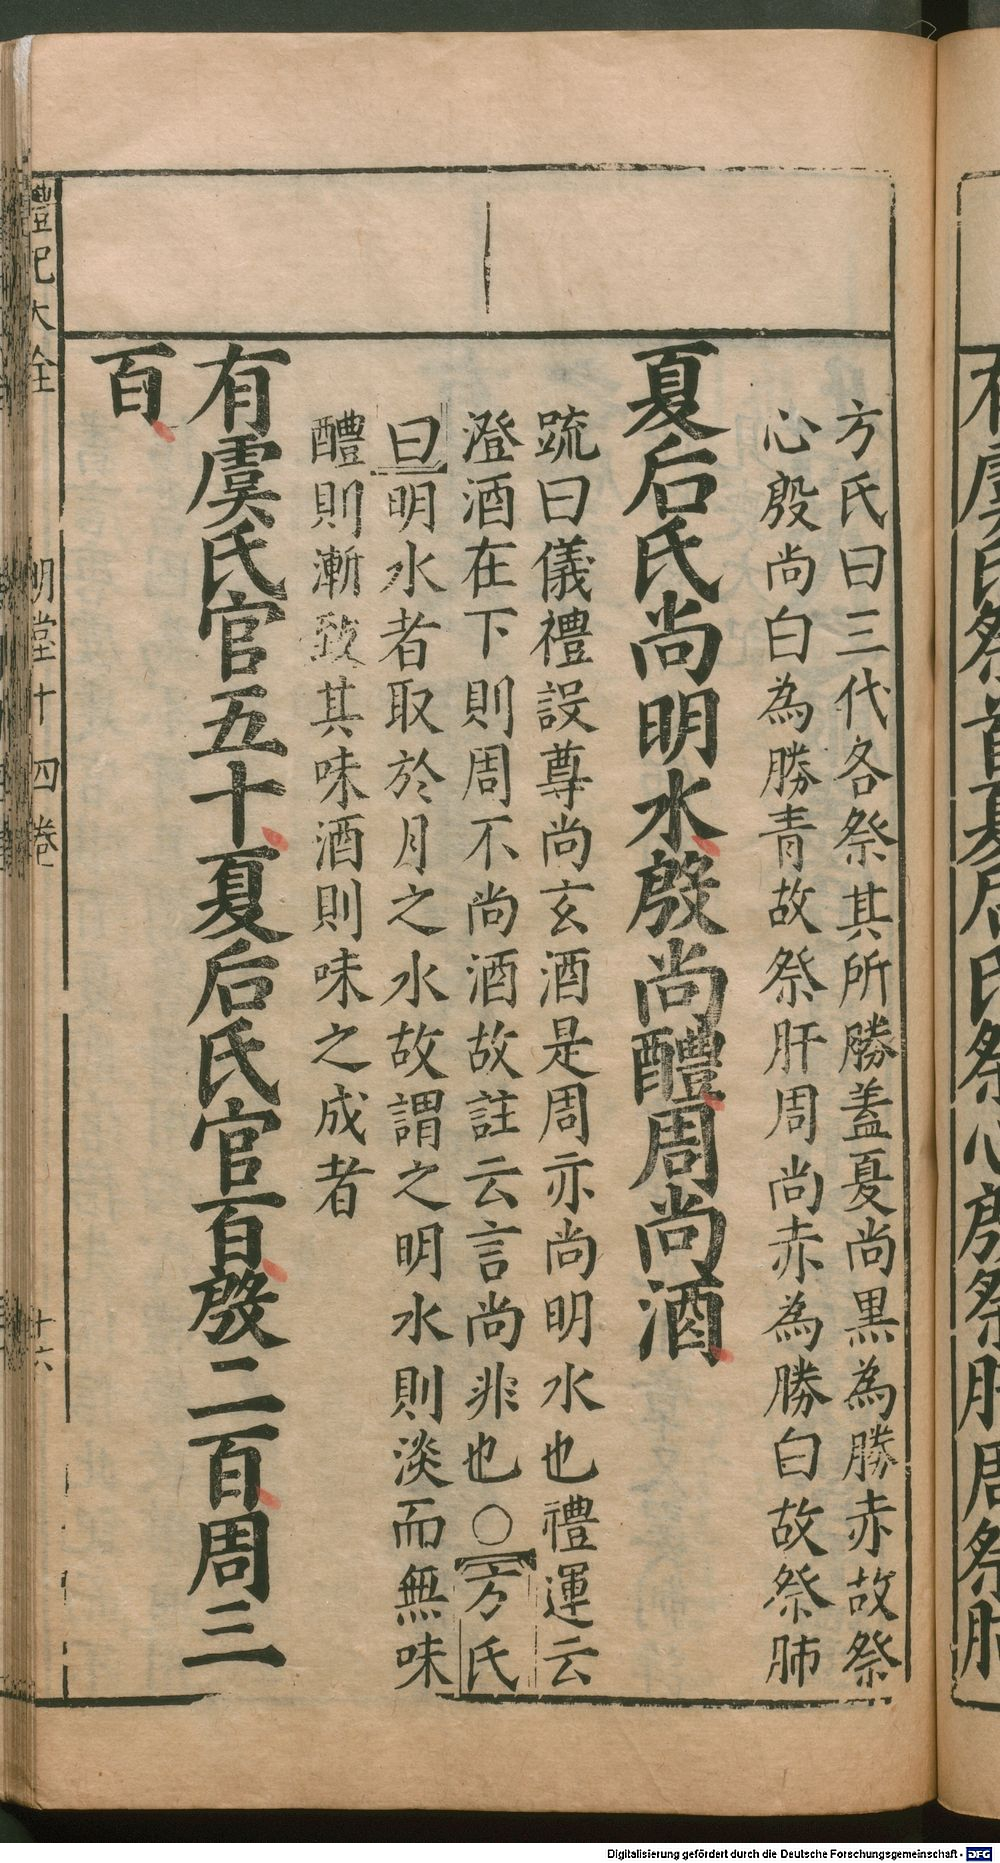 方氏曰三代各祭其所勝蓋夏尚黒為勝赤故祭
心殷尚白為勝青故祭肝周尚赤為勝白故祭肺
夏后氏尚明水殷尚醴周尚酒
䟽曰儀禮設尊尚玄酒是周亦尚明水也禮運云
澄酒在下則周不尚酒故註云言尚非也○方氏
曰明水者取於月之水故謂之明水則淡而無味
醴則漸致其味酒則味之成者
有虞氏官五十夏后氏官百殷二百周三
百
禮記大全 明堂十四卷 十六
有虞氏祭首夏后氏祭心殷祭肝周祭肺
Digitalisierung gefördert durch die Deutsche Forschungsgemeinschaft - DFG